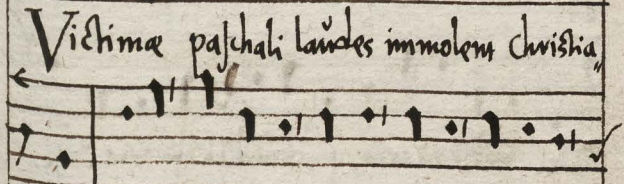 Victimæ paschali laudes immolent Christia„